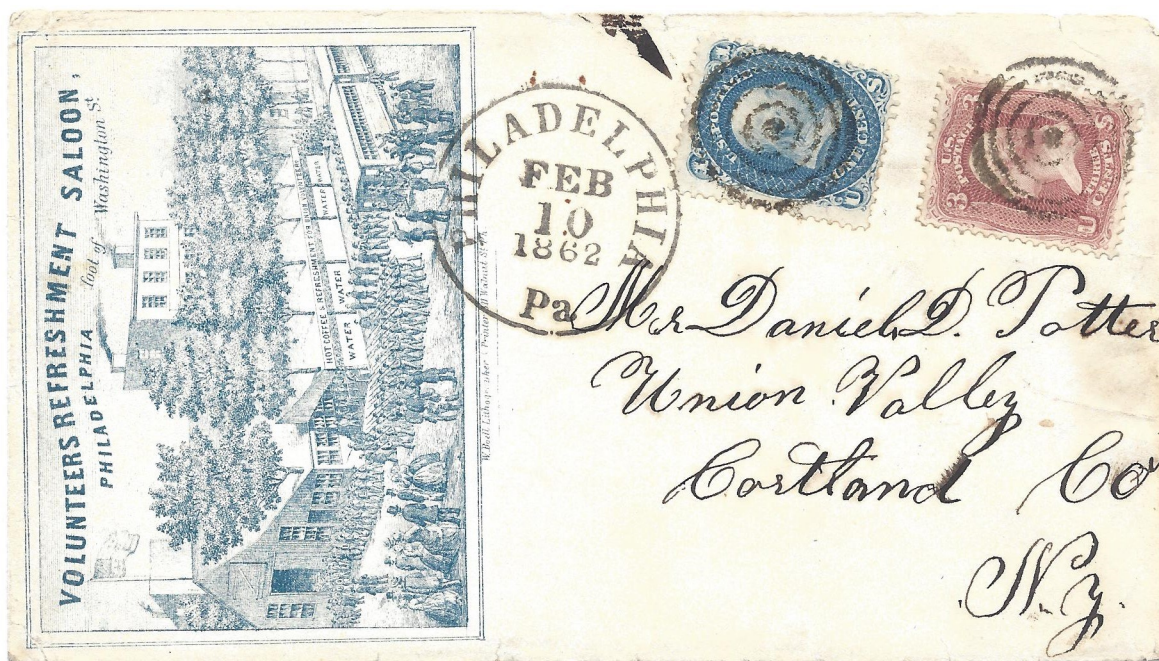 VOLUNTEERS REFRESHMENT SALOON,
PHILADELPHIA foot of Washington St
HOT COFFEE REFRESHMENT
WATER WATER WATER WATER
PHILADELPHIA
FEB
10
1862
Pa
U.S. POSTAGE
ONE CENT
U.S. POSTAGE
THREE CENTS
3 3
Mr Daniel D. Potter
Union Valley
Cortland Co
N.Y.